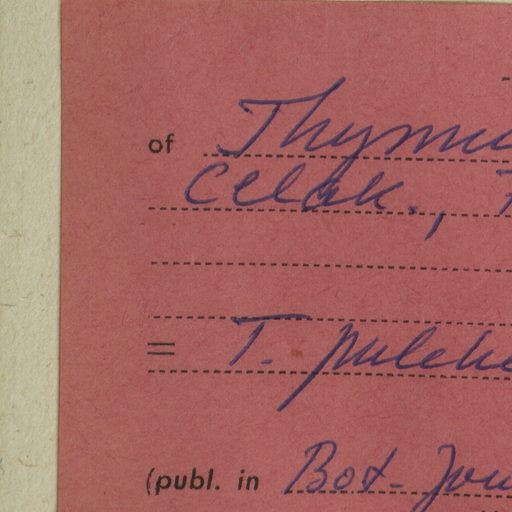 of Thymu
Celak.,
= T. pulche
(publ. in Bot. Jou